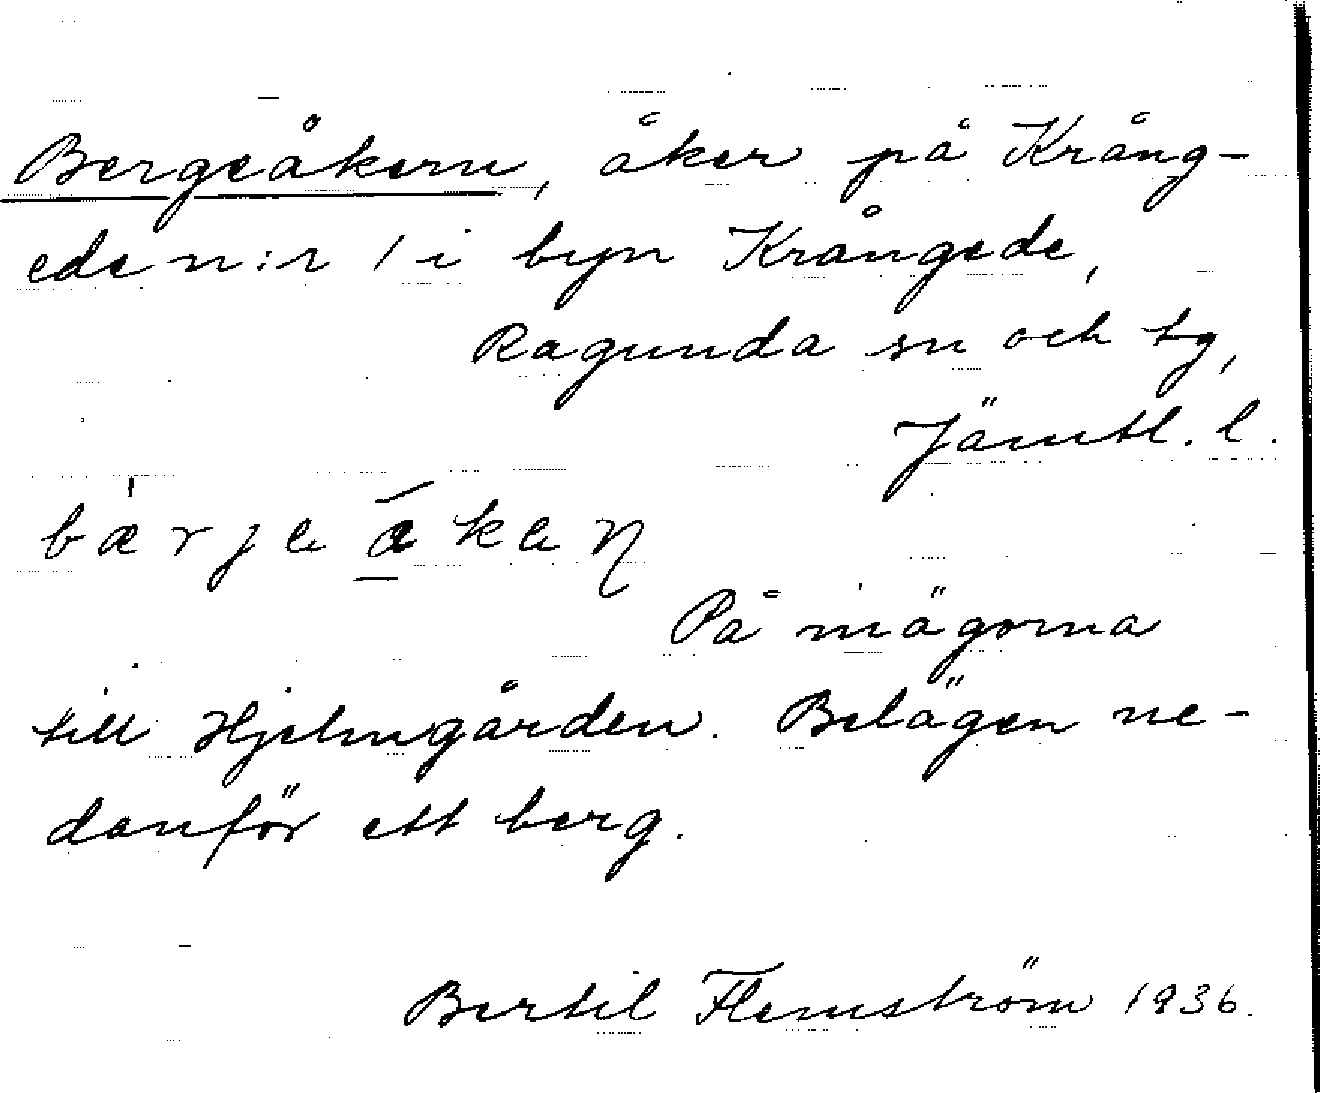 Bergeåkern, åker på Krång-
ede n:r 1 i byn Krångede,
Ragunda sn och tg,
Jämtl. l.
bærjeákeη
På inägorna
till Hjelmgården. Belägen ne-
danför ett berg.
Bertil Flemström 1936.